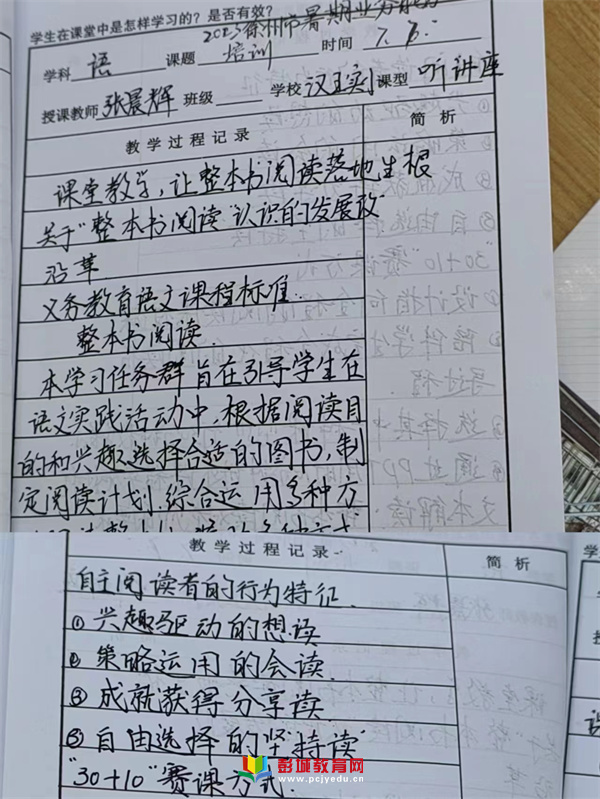 学生在课堂中是怎样学习的？是否有效？
学科 语 课题 2023徐州市暑期业务能力培训 时间 7.6.
授课教师 张晨辉 班级 学校 汉王实 课型 听讲座
教学过程记录 简析
课堂教学，让整本书阅读落地生根
关于"整本书阅读"认识的发展改
沿革
义务教育语文课程标准.
整本书阅读.
本学习任务群旨在引导学生在
语文实践活动中，根据阅读目
的和兴趣选择合适的图书，制
定阅读计划.综合运用多种方
教学过程记录 简析
自主阅读者的行为特征.
①兴趣驱动的想读
②策略运用的会读.
③成就获得分享读
③自由选择的坚持读
"30+10"赛课方式.
彭城教育网
www.pcjyedu.cn